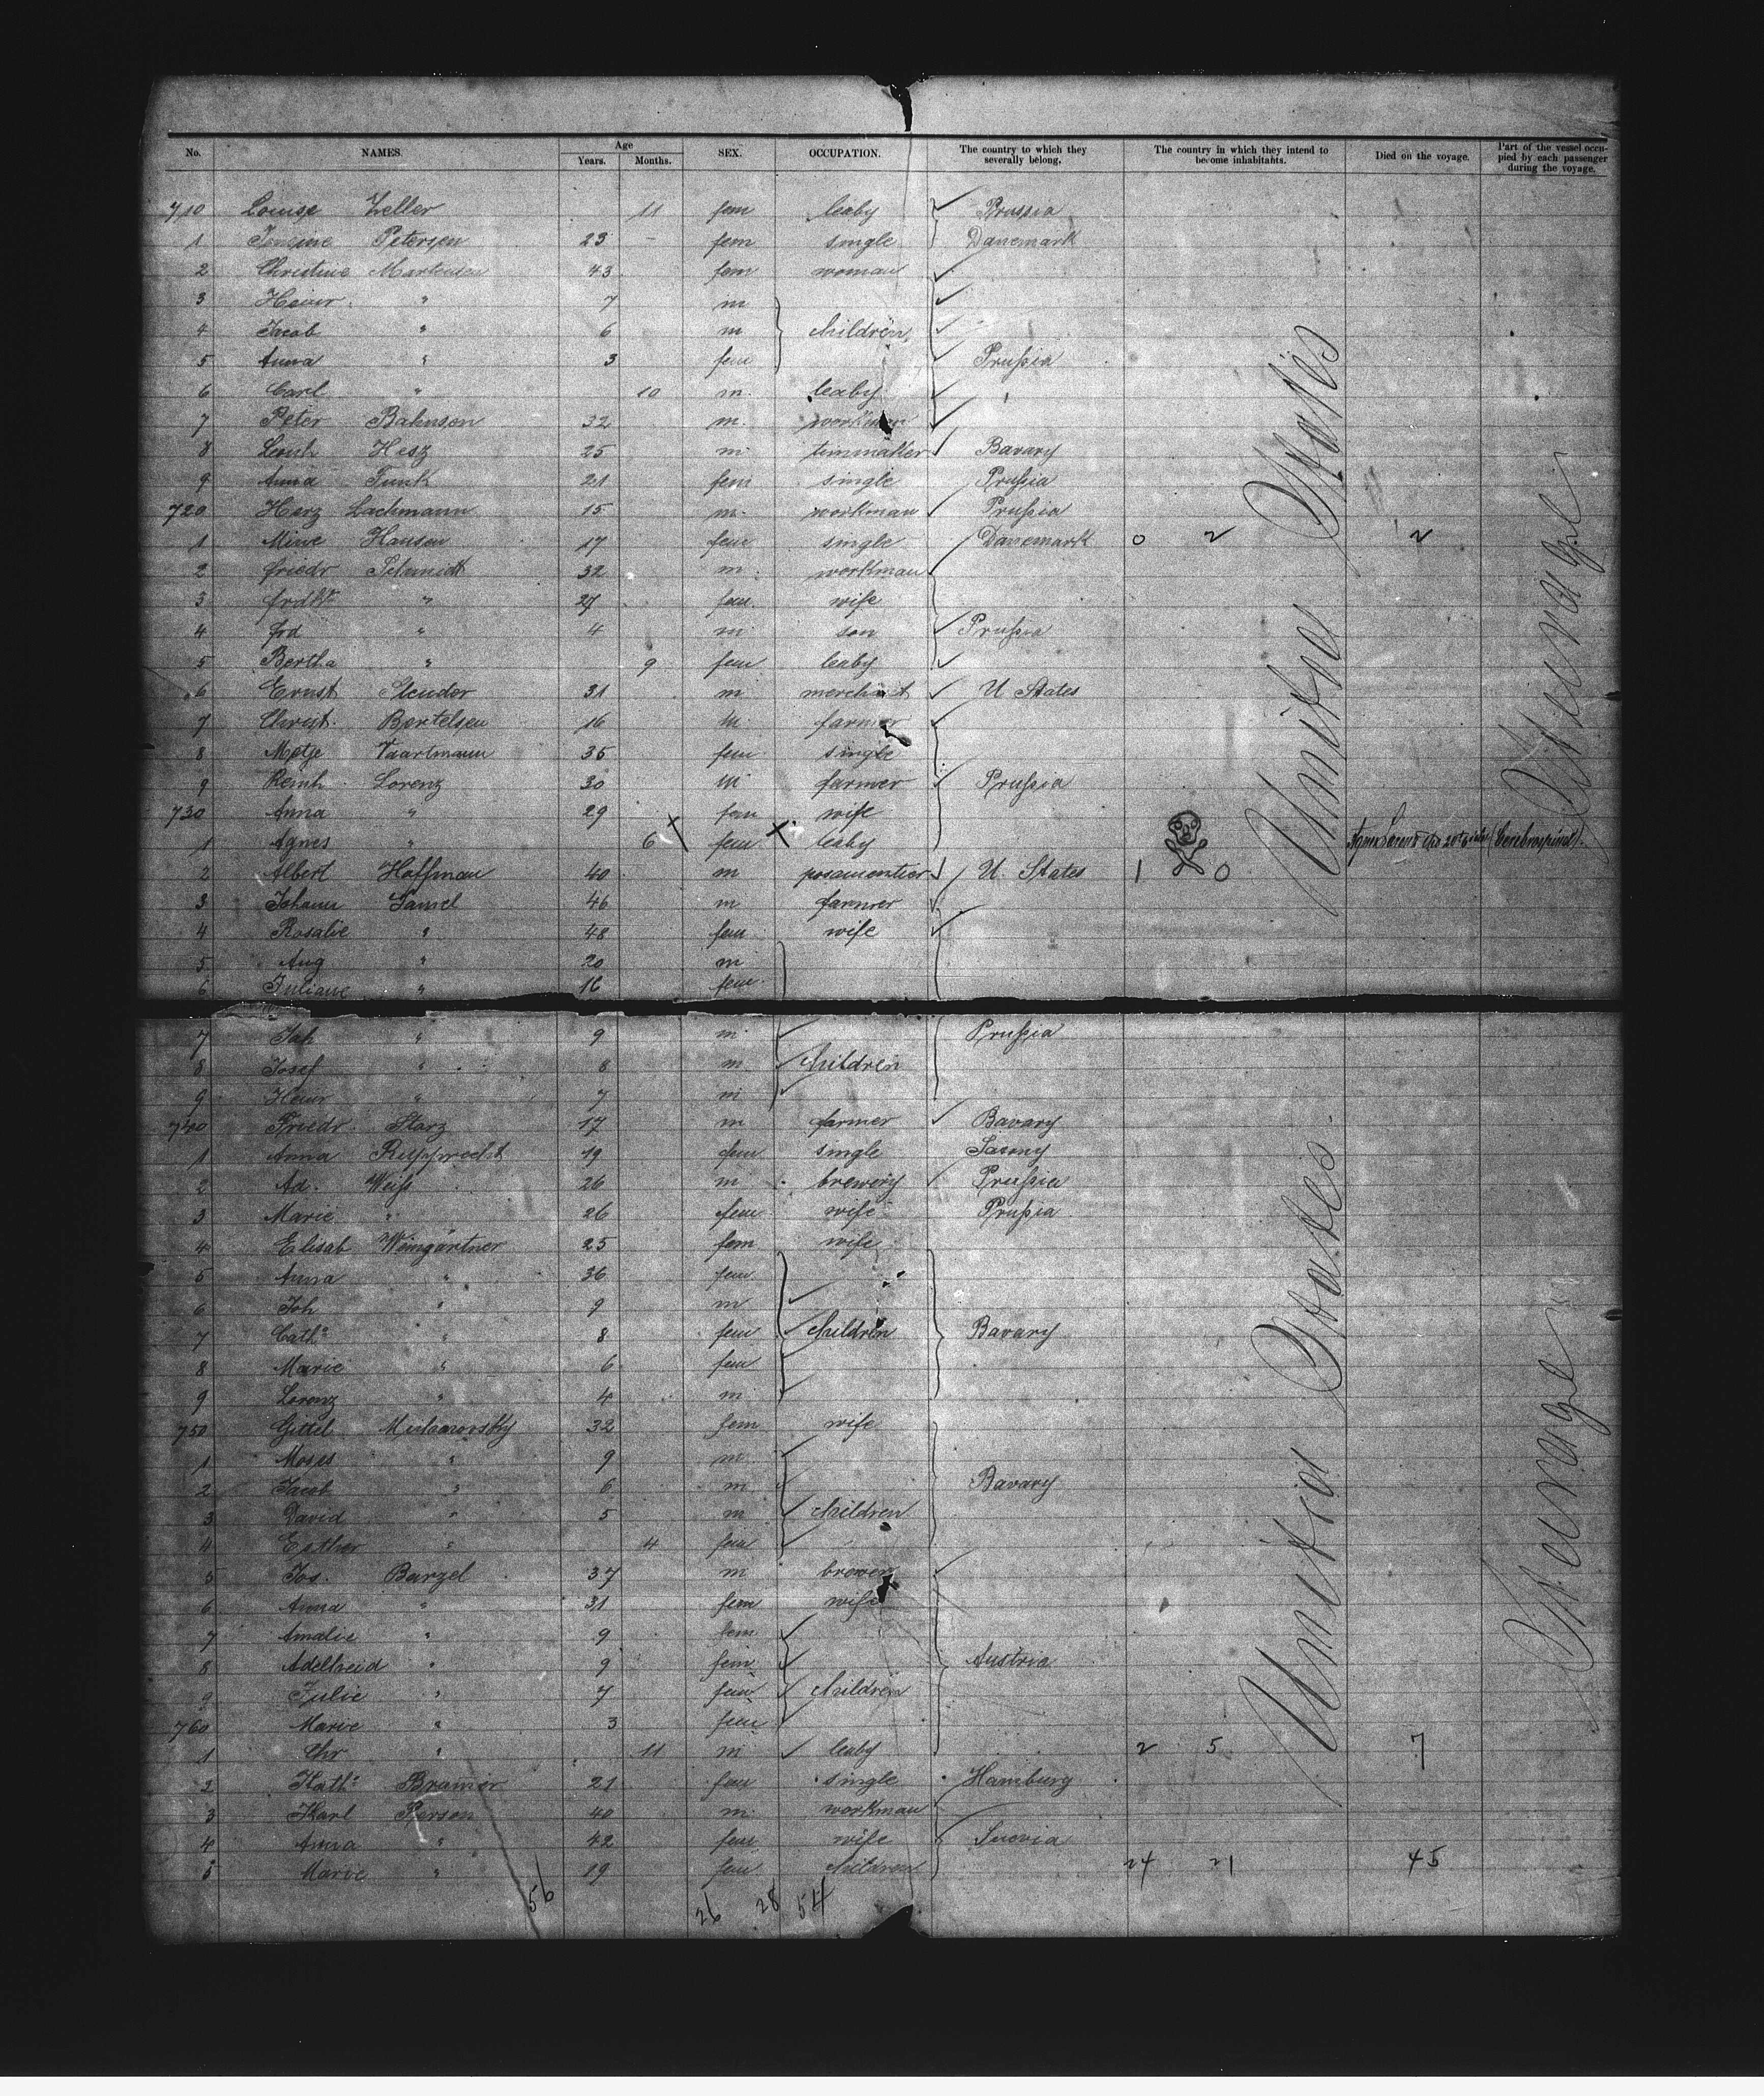 No. NAMES. Age Years. Months. SEX. OCCUPATION. The country to which they severally belong. The country in which they intend to become inhabitants. Died on the voyage. Part of the vessel occupied by each passenger during the voyage.
710 Louise Zeller 11 fem baby Prussia
1 Petersen 23 - fem single Danemark
2 Christine Martensen 43 fem woman
3 Heinr. " 7 m
4 Jacob " 6 m children
5 Anna " 3 fem Prußia
6 Carl " 10 m. baby
7 Peter Bahnsen 32 m. workman
8 Hesz 25 m tinmaker Bavary
9 Anna Funk 21 fem single Prußia
720 Herz Lachmann 15 m. workman Prußia
1 Mine Hansen 17 fem single Danemark 0 2 2
2 Friedr Schmidt 32 m. workman
3 " 27 fem. wife
4 Frd " 4 m son Prußia
5 Bertha " 9 fem baby
6 Ernst Steudor 31 m merchant U States
7 Christ. Bertelsen 16 m. farmer
8 Metje Vaartmann 35 fem single
9 Reinh. Lorenz 30 m farmer Prußia
730 Anna " 29 fem wife
1 Agnes " 6 X fem X baby Agnes Lorenz
2 Albert Hoffman 40 m posamentier U. States 1 0
3 Johann 46 m farmer
4 Rosalie " 48 fem wife
5 Aug " 20 m
6 Juliane " 16 fem
7 Joh " 9 m Prußia
8 Josef " 8 m. children
9 Heinr " 7 m
740 Friedr. Starz 17 m farmer Bavary
1 Anna Rupprecht 19 fem single
2 Ad. Weiß 26 m brewery Prußia
3 Marie " 26 fem wife Prußia
4 Elisab Weingärtner 25 fem wife
5 Anna " 36 fem
6 Joh " 9 m
7 Cathe " 8 fem children Bavary
8 Marie " 6 fem
9 Lorenz " 4 m
750 Gittel 32 fem wife
1 Moses " 9 m
2 Jacob " 6 m Bavary
3 David " 5 m children
4 Esther " 4 fem
5 Jos. Barzel 37 m brower
6 Anna " 31 fem wife
7 Amalie " 9 fem
8 Adelheid " 9 fem Austria
9 Julie " 7 fem children
760 Marie " 3 fem
1 Chr " 11 m baby 2 5 7
2 Kathe Bramer 21 fem single Hamburg
3 Karl Person 40 m. workman
4 Anna " 42 fem wife
5 Marie " 19 fem children 24 21 45
56 26 28 54
United States
Steerage
United States
Steerage